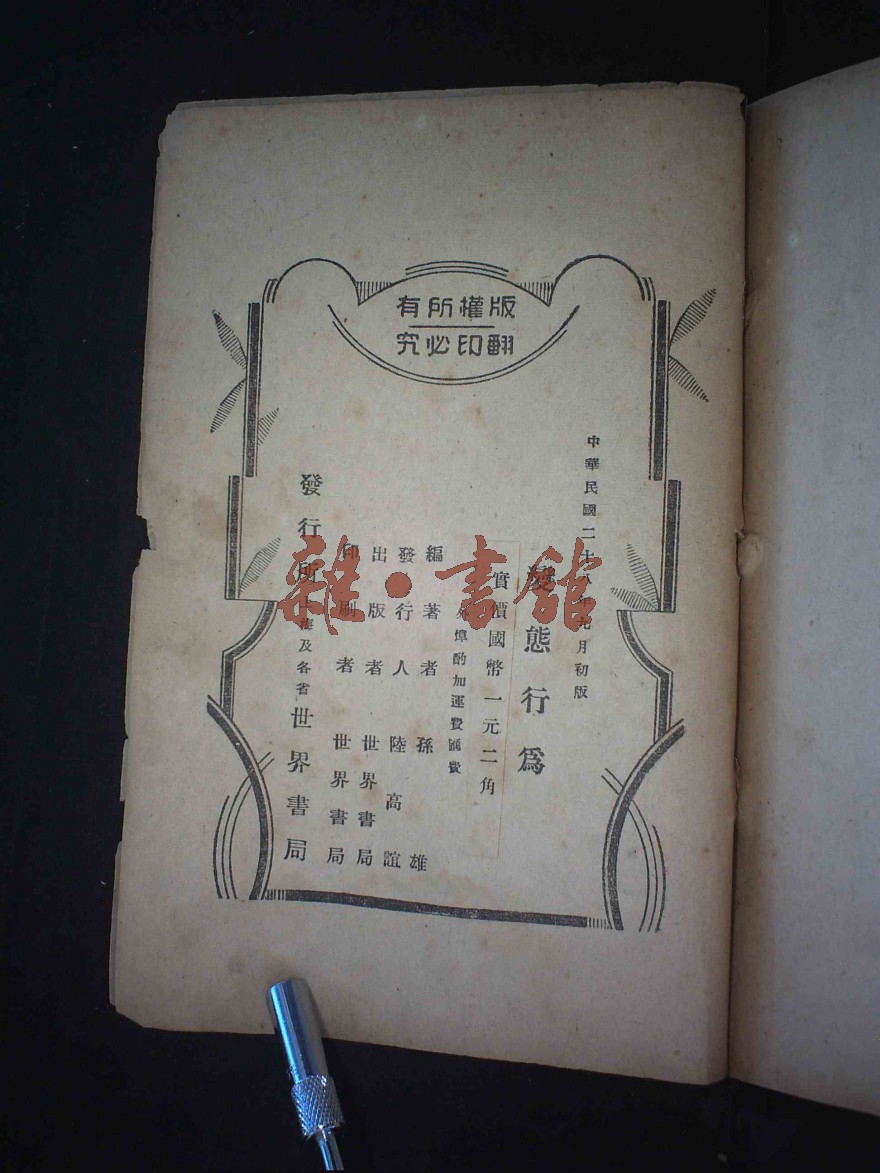 版權所有
翻印必究
中華民國二十八年九月初版
變態行爲
實價國幣一元二角
外埠酌加運費匯費
編著者 孫雄
發行人 陸高誼
出版者 世界書局
印刷者 世界書局
發行所 上海及各省 世界書局
雜·書館